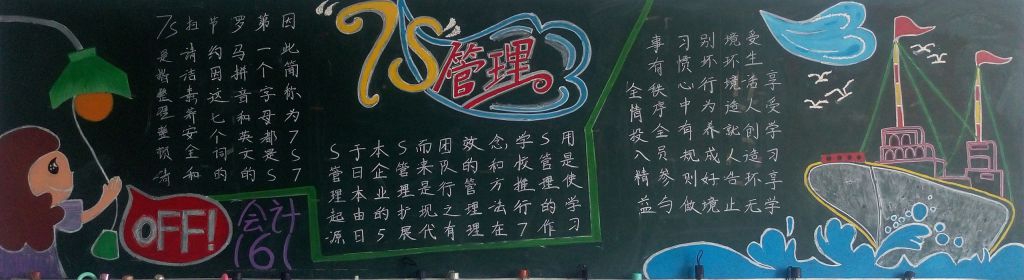 7S管理
7S是指整理整顿清
扫请洁素养安全和
节约因这七个词的
罗马拼音和英文的
第一个字母都是S
因此简称为7S7
S管理起源
于日本由日
本企业的5
S管理扩展
而来是现代
团队行之有
效的管理理
念和方法在
学校推行7
S管理的作
用是使学习
享受学习享学
受生活人创造环无
境环境造就人告止
别坏行为养成好境
习惯心中有规则做
事有秩序全员参与
全情投入精益
OFF!
会计
161